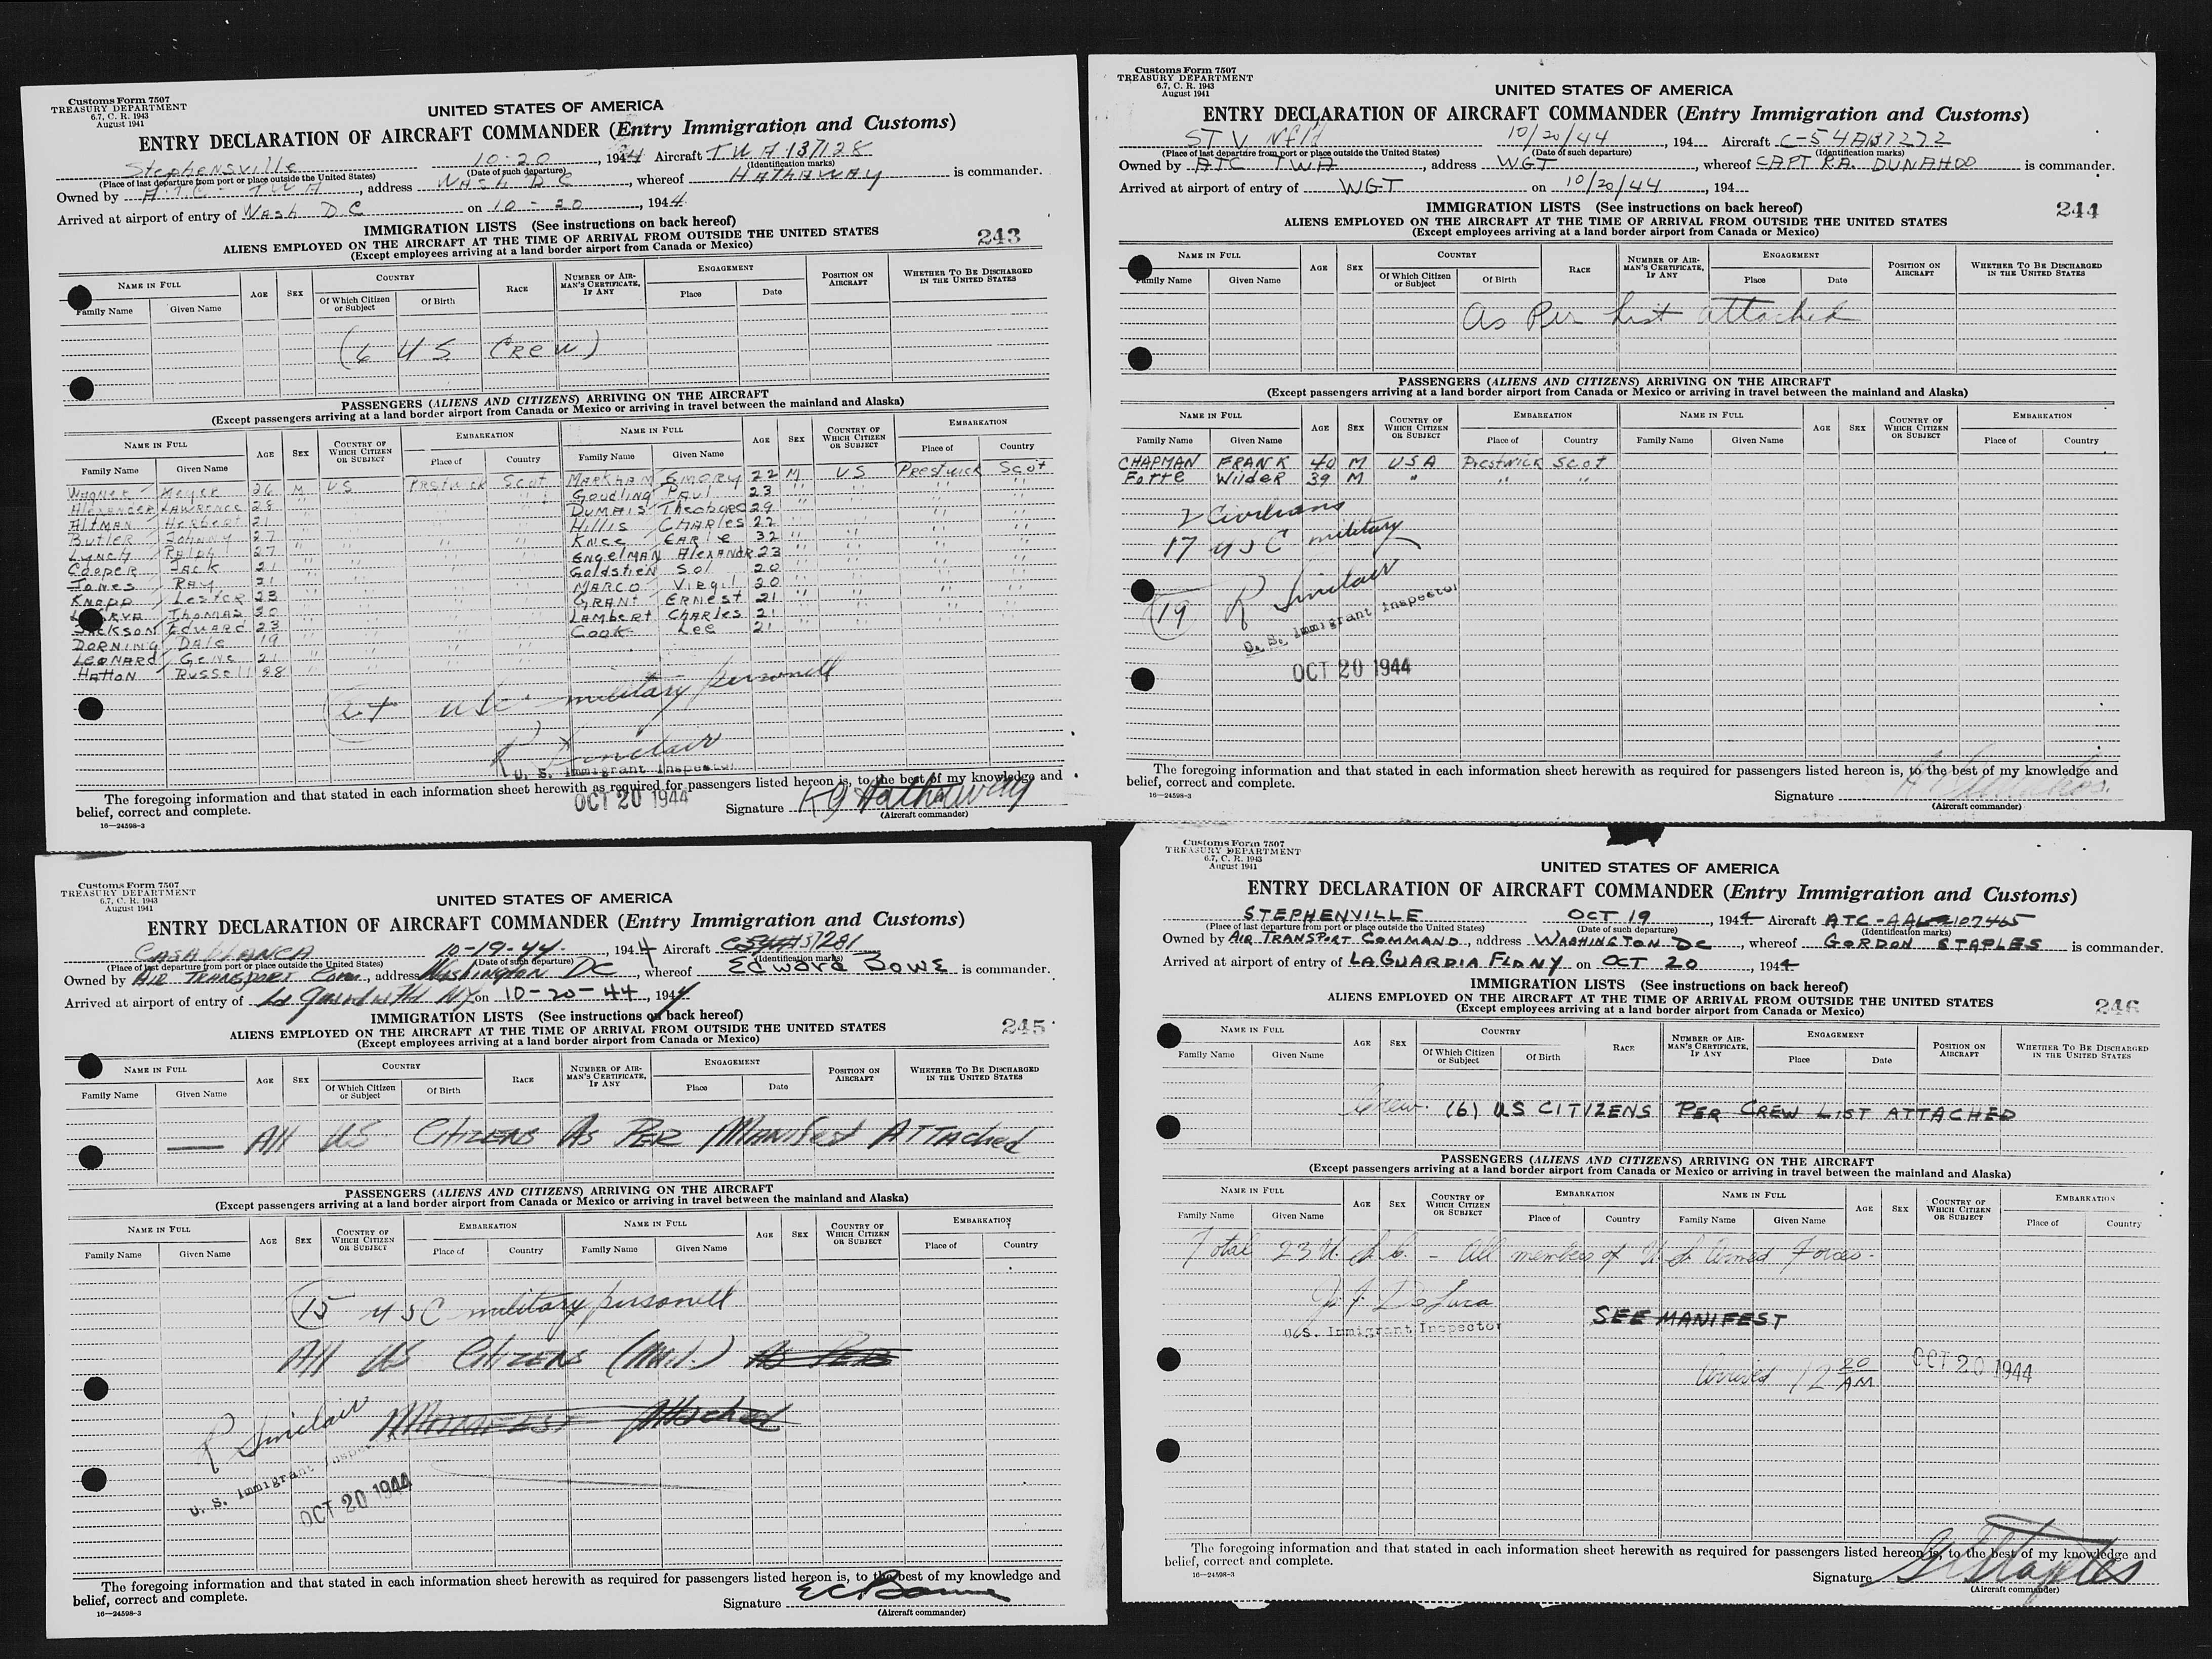 Customs Form 7507
TREASURY DEPARTMENT
6.7, C. R. 1943
August 1941
UNITED STATES OF AMERICA
ENTRY DECLARATION OF AIRCRAFT COMMANDER (Entry Immigration and Customs)
Stephensville 10-20, 1944 Aircraft T.W.A 137128
(Place of last departure from port or place outside the United States) (Date of such departure) (Identification marks)
Owned by A.T.C - TWA, address Wash D C, whereof HATHAWAY is commander.
Arrived at airport of entry of Wash D.C on 10-20, 1944
IMMIGRATION LISTS (See instructions on back hereof)
243
ALIENS EMPLOYED ON THE AIRCRAFT AT THE TIME OF ARRIVAL FROM OUTSIDE THE UNITED STATES
(Except employees arriving at a land border airport from Canada or Mexico)
NAME IN FULL AGE SEX COUNTRY RACE NUMBER OF AIRMAN'S CERTIFICATE, IF ANY ENGAGEMENT POSITION ON AIRCRAFT WHETHER TO BE DISCHARGED IN THE UNITED STATES
Family Name Given Name Of Which Citizen or Subject Of Birth Place Date
(6 US CREW)
PASSENGERS (ALIENS AND CITIZENS) ARRIVING ON THE AIRCRAFT
(Except passengers arriving at a land border airport from Canada or Mexico or arriving in travel between the mainland and Alaska)
NAME IN FULL AGE SEX COUNTRY OF WHICH CITIZEN OR SUBJECT EMBARKATION NAME IN FULL AGE SEX COUNTRY OF WHICH CITIZEN OR SUBJECT EMBARKATION
Family Name Given Name Place of Country Family Name Given Name Place of Country
Wagner Meyer 26 M US Prstwick Scot MARKHAM Emory 22 M US Prestwick Scot
Alexander LAWRENCE 28 Goudling Paul 23
Altman Herbert 21 DUMAIS Theodore 29
Butler Johnny 27 Hillis CHARles 22
Lynch Ralph 27 Knee EARle 32
Cooper Jack 21 ENgelMAN Alexandr 23
Jones Ray 21 Goldstien Sol 20
Knapp Lester 23 MARCO Virgil 20
Thomas 20 GRANt ERNest 21
Jackson Edward 23 LAMbert CHARles 21
DORNING Dale 19 Cook Lee 21
LeoNARd Gene 21
HAttON Russell 28
24 USC military personell
R Sinclair
U. S. Immigrant Inspector
OCT 20 1944
The foregoing information and that stated in each information sheet herewith as required for passengers listed hereon is, to the best of my knowledge and
belief, correct and complete.
Signature R G Hathaway
(Aircraft commander)
16—24598-3
Customs Form 7507
TREASURY DEPARTMENT
6.7, C. R. 1943
August 1941
UNITED STATES OF AMERICA
ENTRY DECLARATION OF AIRCRAFT COMMANDER (Entry Immigration and Customs)
ST V Nfld 10/20/44, 194 Aircraft C-54AB7272
(Place of last departure from port or place outside the United States) (Date of such departure) (Identification marks)
Owned by ATC TWA, address WGT, whereof CAPT RA. DUNAHOO is commander.
Arrived at airport of entry of WGT on 10/20/44, 194
IMMIGRATION LISTS (See instructions on back hereof)
244
ALIENS EMPLOYED ON THE AIRCRAFT AT THE TIME OF ARRIVAL FROM OUTSIDE THE UNITED STATES
(Except employees arriving at a land border airport from Canada or Mexico)
NAME IN FULL AGE SEX COUNTRY RACE NUMBER OF AIRMAN'S CERTIFICATE, IF ANY ENGAGEMENT POSITION ON AIRCRAFT WHETHER TO BE DISCHARGED IN THE UNITED STATES
Family Name Given Name Of Which Citizen or Subject Of Birth Place Date
As Per List attached
PASSENGERS (ALIENS AND CITIZENS) ARRIVING ON THE AIRCRAFT
(Except passengers arriving at a land border airport from Canada or Mexico or arriving in travel between the mainland and Alaska)
NAME IN FULL AGE SEX COUNTRY OF WHICH CITIZEN OR SUBJECT EMBARKATION NAME IN FULL AGE SEX COUNTRY OF WHICH CITIZEN OR SUBJECT EMBARKATION
Family Name Given Name Place of Country Family Name Given Name Place of Country
CHAPMAN FRANK 40 M USA Prestwick Scot
Forte Wilder 39 M " " "
2 Civilians
17 USC military
19 R Sinclair
U. S. Immigrant Inspector
OCT 20 1944
The foregoing information and that stated in each information sheet herewith as required for passengers listed hereon is, to the best of my knowledge and
belief, correct and complete.
Signature
(Aircraft commander)
16—24598-3
Customs Form 7507
TREASURY DEPARTMENT
6.7, C. R. 1943
August 1941
UNITED STATES OF AMERICA
ENTRY DECLARATION OF AIRCRAFT COMMANDER (Entry Immigration and Customs)
CASABLANCA 10-19-44, 1944 Aircraft 37281
(Place of last departure from port or place outside the United States) (Date of such departure) (Identification marks)
Owned by AIR TRANSPORT Com., address Washington DC, whereof Edward Bowe is commander.
Arrived at airport of entry of La Guardia Fld NY on 10-20-44, 1944
IMMIGRATION LISTS (See instructions on back hereof)
245
ALIENS EMPLOYED ON THE AIRCRAFT AT THE TIME OF ARRIVAL FROM OUTSIDE THE UNITED STATES
(Except employees arriving at a land border airport from Canada or Mexico)
NAME IN FULL AGE SEX COUNTRY RACE NUMBER OF AIRMAN'S CERTIFICATE, IF ANY ENGAGEMENT POSITION ON AIRCRAFT WHETHER TO BE DISCHARGED IN THE UNITED STATES
Family Name Given Name Of Which Citizen or Subject Of Birth Place Date
— All US Citizens As PER Manifest Attached
PASSENGERS (ALIENS AND CITIZENS) ARRIVING ON THE AIRCRAFT
(Except passengers arriving at a land border airport from Canada or Mexico or arriving in travel between the mainland and Alaska)
NAME IN FULL AGE SEX COUNTRY OF WHICH CITIZEN OR SUBJECT EMBARKATION NAME IN FULL AGE SEX COUNTRY OF WHICH CITIZEN OR SUBJECT EMBARKATION
Family Name Given Name Place of Country Family Name Given Name Place of Country
15 USC military personell
All US Citizens (Mil.) As PER
Manifest Attached
R Sinclair
U. S. Immigrant Inspector
OCT 20 1944
The foregoing information and that stated in each information sheet herewith as required for passengers listed hereon is, to the best of my knowledge and
belief, correct and complete.
Signature E C Bowe
(Aircraft commander)
16—24598-3
Customs Form 7507
TREASURY DEPARTMENT
6.7, C. R. 1943
August 1941
UNITED STATES OF AMERICA
ENTRY DECLARATION OF AIRCRAFT COMMANDER (Entry Immigration and Customs)
STEPHENVILLE OCT 19, 1944 Aircraft ATC-AAL 107465
(Place of last departure from port or place outside the United States) (Date of such departure) (Identification marks)
Owned by AIR TRANSPORT COMMAND, address WASHINGTON DC, whereof GORDON STAPLES is commander.
Arrived at airport of entry of LAGUARDIA FLD NY on OCT 20, 1944
IMMIGRATION LISTS (See instructions on back hereof)
246
ALIENS EMPLOYED ON THE AIRCRAFT AT THE TIME OF ARRIVAL FROM OUTSIDE THE UNITED STATES
(Except employees arriving at a land border airport from Canada or Mexico)
NAME IN FULL AGE SEX COUNTRY RACE NUMBER OF AIRMAN'S CERTIFICATE, IF ANY ENGAGEMENT POSITION ON AIRCRAFT WHETHER TO BE DISCHARGED IN THE UNITED STATES
Family Name Given Name Of Which Citizen or Subject Of Birth Place Date
Crew. (6) US CITIZENS PER CREW LIST ATTACHED
PASSENGERS (ALIENS AND CITIZENS) ARRIVING ON THE AIRCRAFT
(Except passengers arriving at a land border airport from Canada or Mexico or arriving in travel between the mainland and Alaska)
NAME IN FULL AGE SEX COUNTRY OF WHICH CITIZEN OR SUBJECT EMBARKATION NAME IN FULL AGE SEX COUNTRY OF WHICH CITIZEN OR SUBJECT EMBARKATION
Family Name Given Name Place of Country Family Name Given Name Place of Country
Total 23 U.S.C. - All members of U.S. Armed Forces.
J. F. De Luca
U.S. Immigrant Inspector
SEE MANIFEST
Arrived 12 20 AM OCT 20 1944
The foregoing information and that stated in each information sheet herewith as required for passengers listed hereon is, to the best of my knowledge and
belief, correct and complete.
Signature G Staples
(Aircraft commander)
16—24598-3